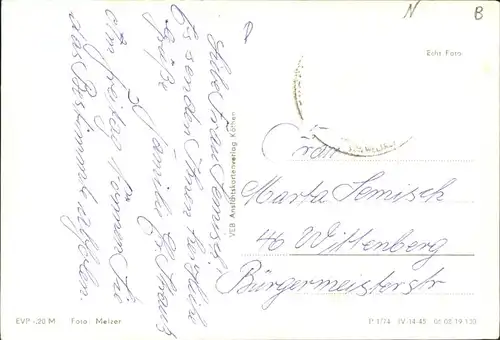 N B
Liebe Frau Jemisch!
Es senden Ihnen herzliche
Grüße
Familie G. Strauß
Am Freitag können Sie
das Bestimmt abholen.
VEB Ansichtskartenverlag Köthen
Echt Foto
Frau
Marta Jemisch
46 Wittenberg
Bürgermeisterstr
EVP -,20 M Foto: Melzer
P 1/74 IV-14-45 01 05 19 120